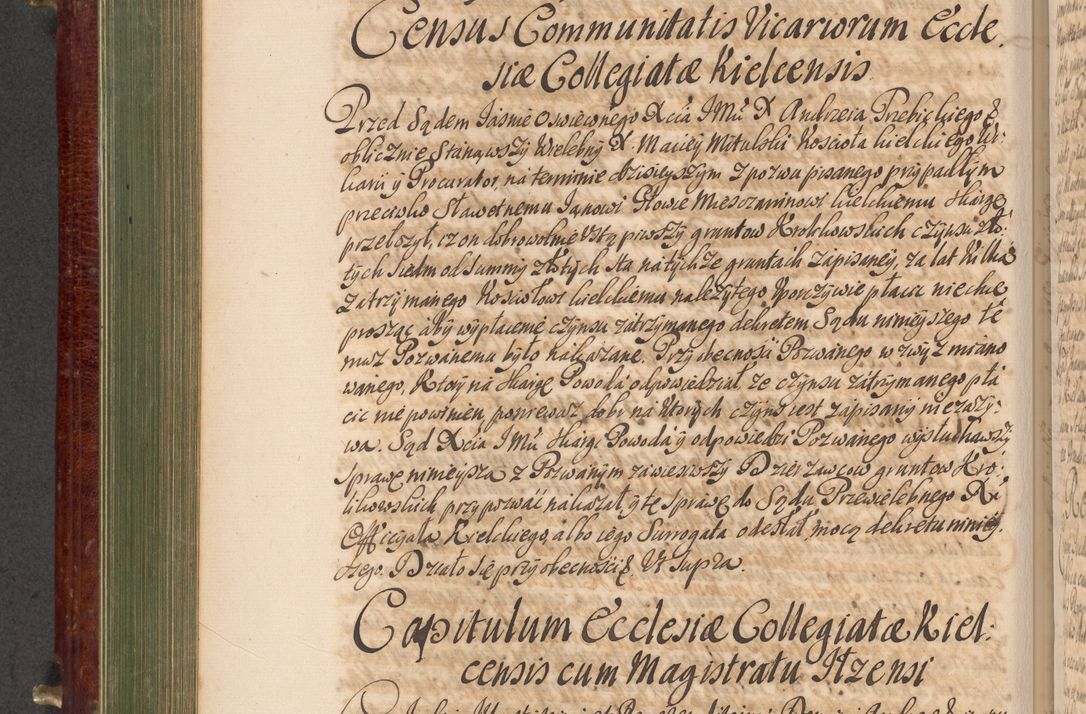 Census Communitatis Vicariorum Eccle.
siæ Collegiatæ Kielcensis
Przed Sądem Jasnie Oswieconego Xcia JMci X Andrzeia Trebickiego &
oblicznie Stanąwszy Wielebny X. Maciey Mitulski Koscioła kielckiego Wi-
kary y Procurator, na terminie dzisieyszym z pozwu pisanego przypadłym
przeciwko Sławetnemu Janowi Głowie Miesczaninowi kielckiemu skargę
przełozył, iz on dobrowolnie Ustąpiwszy gruntow Krolikowskich czynszu zło-
tych siedm od summy złotych sta na tychze gruntach zapisaney, za lat kilka
zatrzymanego Kosciołowi kielckiemu nalezytego uporczywie płacic niechce
prosząc aby wypłacenie czynszu zatrzymanego dekretem Sądu ninieyszego te
muz Pozwanemu było nakazane. Przy obecnosci Pozwanego w zwyz miano
wanego, Ktory na skargę Powoda odpowiedział, ze czynszu zatrzymanego pła
cic nie powinien, poniewaz dobr na ktorych czynsz iest zapisany nie zazy-
wa. Sąd Xcia JMci skargi Powoda y odpowiedzi Pozwanego wysłuchawszy
sprawę ninieyszą z Pozwanym zawiesiwszy Dzierzawcow gruntow Kro-
likowskich przypozwac nakazał, y tę sprawę do Sądu Przewielebnego Xi
Officyała Kielckiego, albo iego Surrogata odesłał mocą dekretu niniey.
szego. Działo się przy obecnosci & Ut supra.
Capitulum Ecclesiæ Collegiatæ Kiel-
censis cum Magistratu Itzensi